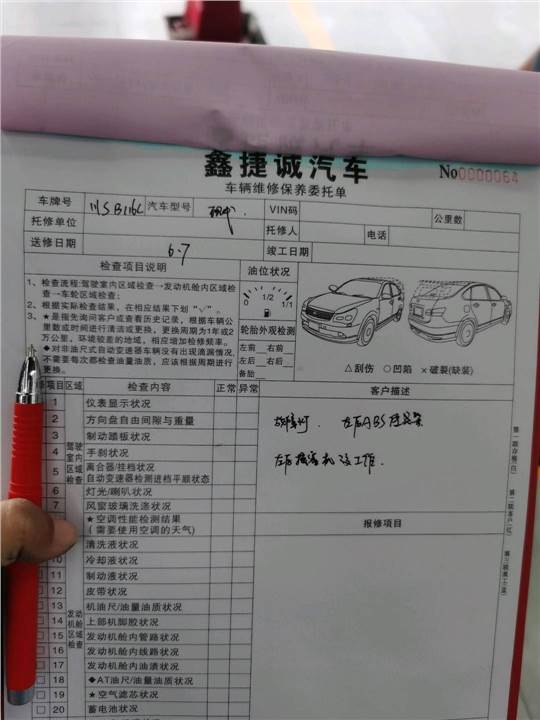 鑫捷诚汽车
No0000064
车辆维修保养委托单
车牌号 川SB116C 汽车型号 VIN码 公里数
托修单位 托修人 电话
送修日期 6.7 竣工日期
检查项目说明 油位状况
1、检查流程:驾驶室内区域检查→发动机舱内区域检查→车轮区域检查;
2、根据实际检查结果，在相应结果下划“√”。
3、★是指先询问客户或查看历史记录，根据车辆公里数或时间进行清洁或更换，更换周期为1年或2万公里，环境较差的地域，相应增加检修频率。
◆对非油尺式自动变速器车辆没有出现滴漏情况，不需要每次都检查油量油质，应该根据周期进行更换。
0 1/2 1/1
轮胎外观检测
左前 右前
左后 右后
备胎
△刮伤 ○凹陷 ×破裂(缺装)
项目 区域 检查内容 正常 异常 客户描述
1 仪表显示状况
2 方向盘自由间隙与重量
3 制动踏板状况
4 手刹状况
5 离合器/挂档状况
自动变速器检测进档平顺状态
6 灯光/喇叭状况
7 风窗玻璃洗涤状况
★空调性能检测结果
(需要使用空调的天气)
清洗液状况
10 冷却液状况
11 制动液状况
12 皮带状况
13 机油尺/油量油质状况
14 上部机脚胶状况
15 发动机舱内管路状况
16 发动机舱内线路状况
17 发动机舱内油渍状况
18 ◆AT油尺/油量油质状况
19 ★空气滤芯状况
20 蓄电池状况
驾驶室内区域检查
发动机舱区域检查
故障灯. 左后ABS
左后 没工作.
报修项目